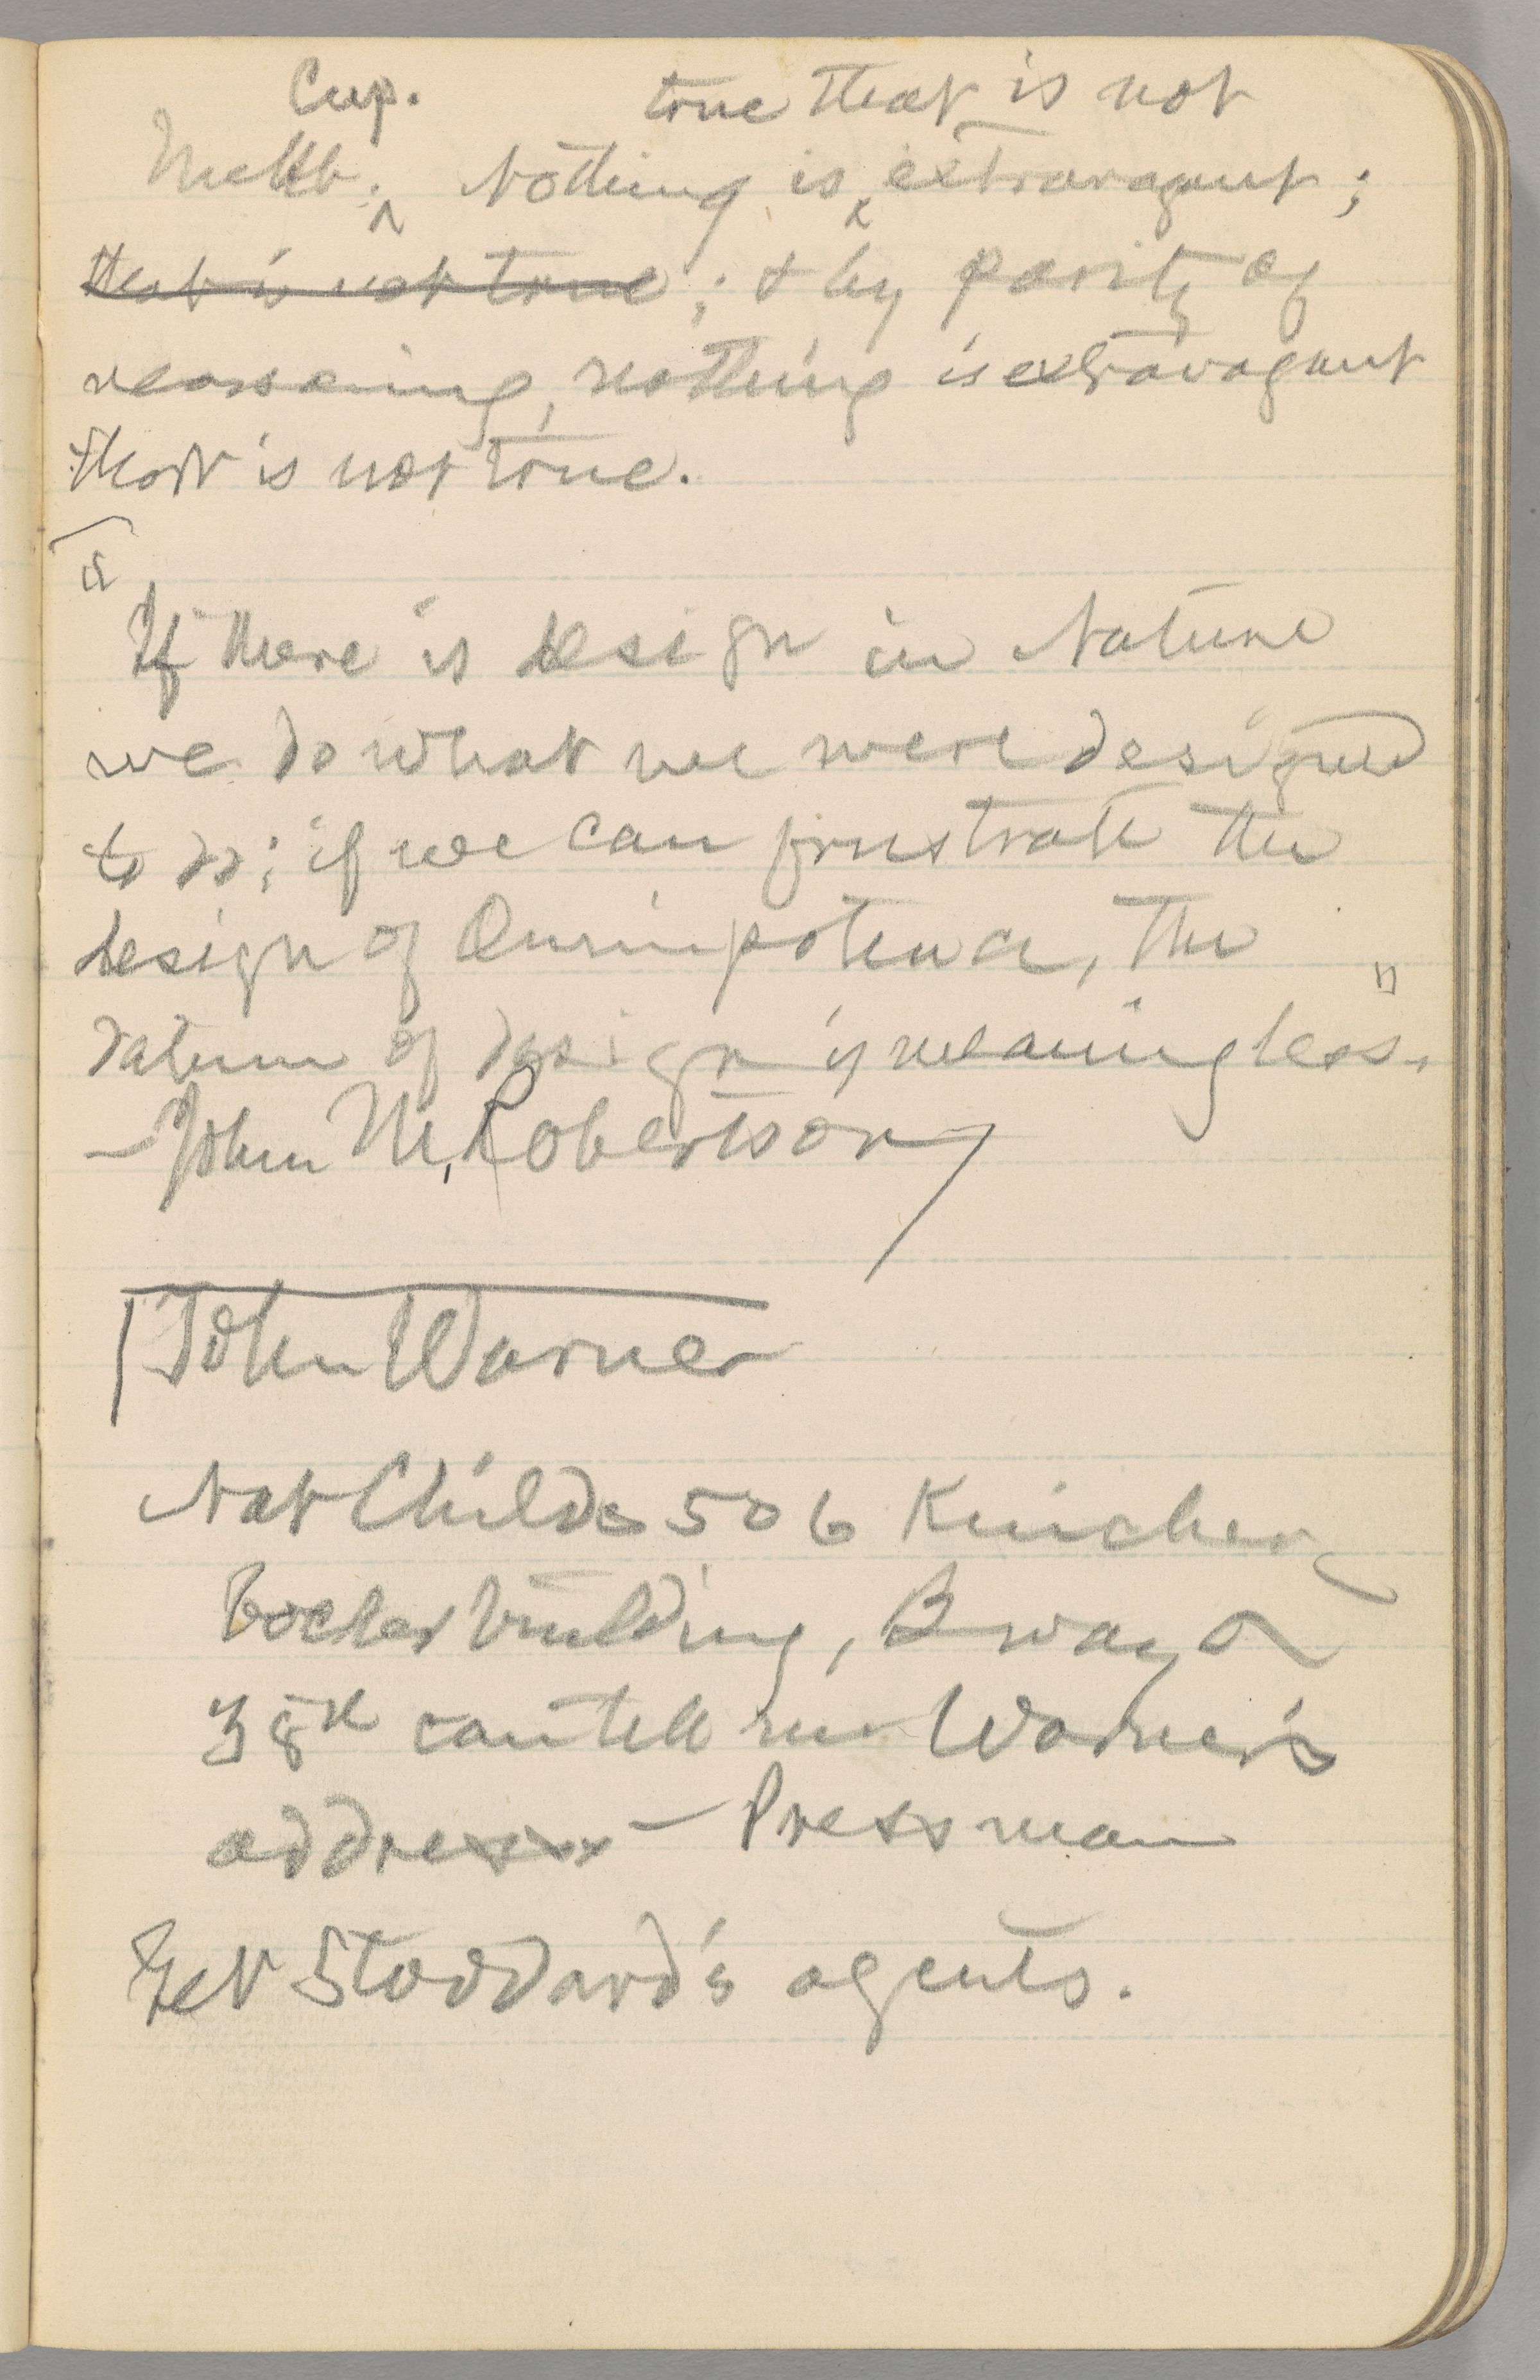 Cup. true that is not
Meth. Nothing is extravagant;
that is not true; & by parity of
reasoning, nothing is extravagant
that is not true.
"If there is design in Nature
we do what we were designed
to do; if we can frustrate the
design of Omnipotence, the
datum of design is meaningless."
—John M. Robertson
John Warner
Nat Childs 506 Knicker
bocker building, Bway &
38th can tell me Warner's
address — Pressman
Get Stoddard's agents.